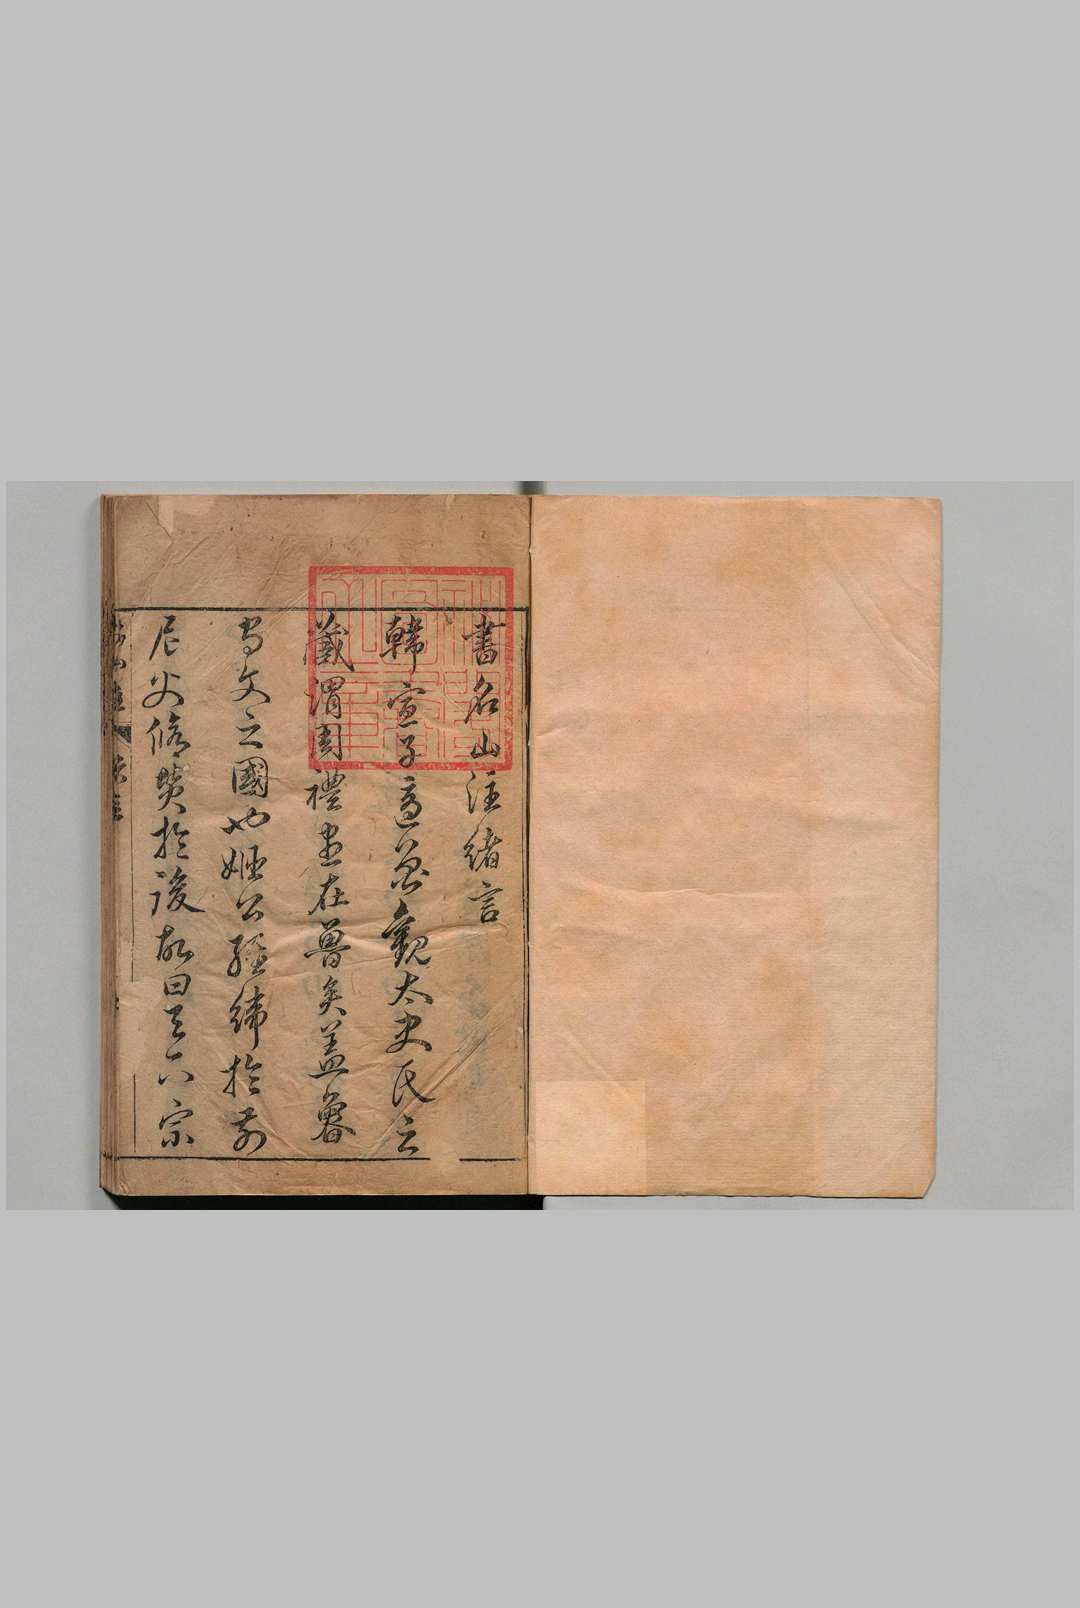 書名山注緒言
韓宣子適魯觀太史氏之
藏謂周禮盡在魯矣蓋魯
尚文之國也姬公經緯於前
尼父脩贊於後故曰天下宗